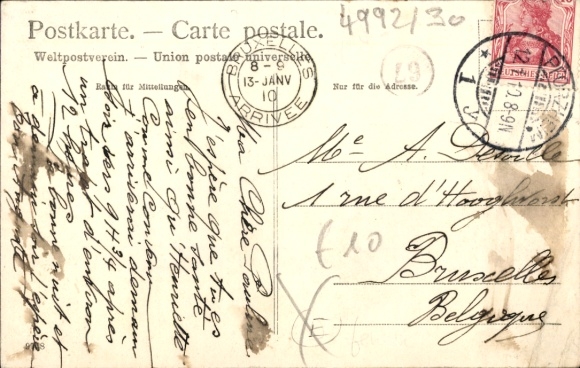 4992/30
Postkarte. — Carte postale.
Weltpostverein. — Union postale universelle
Raum für Mitteilungen
Nur für die Adresse.
BRUXELLES
8-9
13-JANV
10
ARRIVÉE
67
12.1.10.8-9N
1
Ma Chère Pauline
J'espère que tu es
en bonne santé
ainsi qu'Henriette
Comme convenu
j'arriverai demain
soir vers 9 H 3/4 après
un trajet d'environ
12 heures
bonne nuit et
à demain soir j'espère
Me A. Deville
1 rue d'Hooghvorst
Bruxelles
Belgique
£10
E